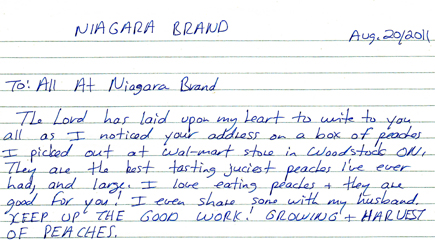 NIAGARA BRAND
Aug. 20/2011
To: All At Niagara Brand
The Lord has laid upon my heart to write to you
all as I noticed your address on a box of peaches
I picked out at Wal-mart store in Woodstock ON.
They are the best tasting juciest peaches i've ever
had, and large. I love eating peaches + they are
good for you! I even share some with my husband.
KEEP UP THE GOOD WORK! GROWING + HARVEST
OF PEACHES.